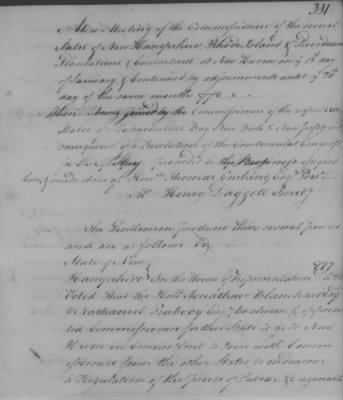 331
At a Meeting of the Commissioners of the several
States of New Hampshire, Rhode Island & Providence
Plantations & Connecticut at New Haven on ye 15 day
of January & Continued by adjournments until ye
day of the same month
being joined by the Commissioners of the
States of Massachusetts Bay New York & New Jersey in
consequence of a Resolution of the Continental Congress
proceeded to the Business assigned
& made choice of Honble Thomas Cushing Esqr Presdt
Mr Henry Daggett Secrety
The Gentlemen produced their several powers
and are as follows Viz
State of New
Hampshire In the House of Representatives
Voted That the Honl Jonathan Blanchard Esq
& Nathaniel Peabody Esqr be chosen & appoin
ted Commissioners for this State to go to New
Haven in Connecticut to Join with Comm
issioners from the other States to endeavor
a Regulation of the prices of Labour &c agreeable